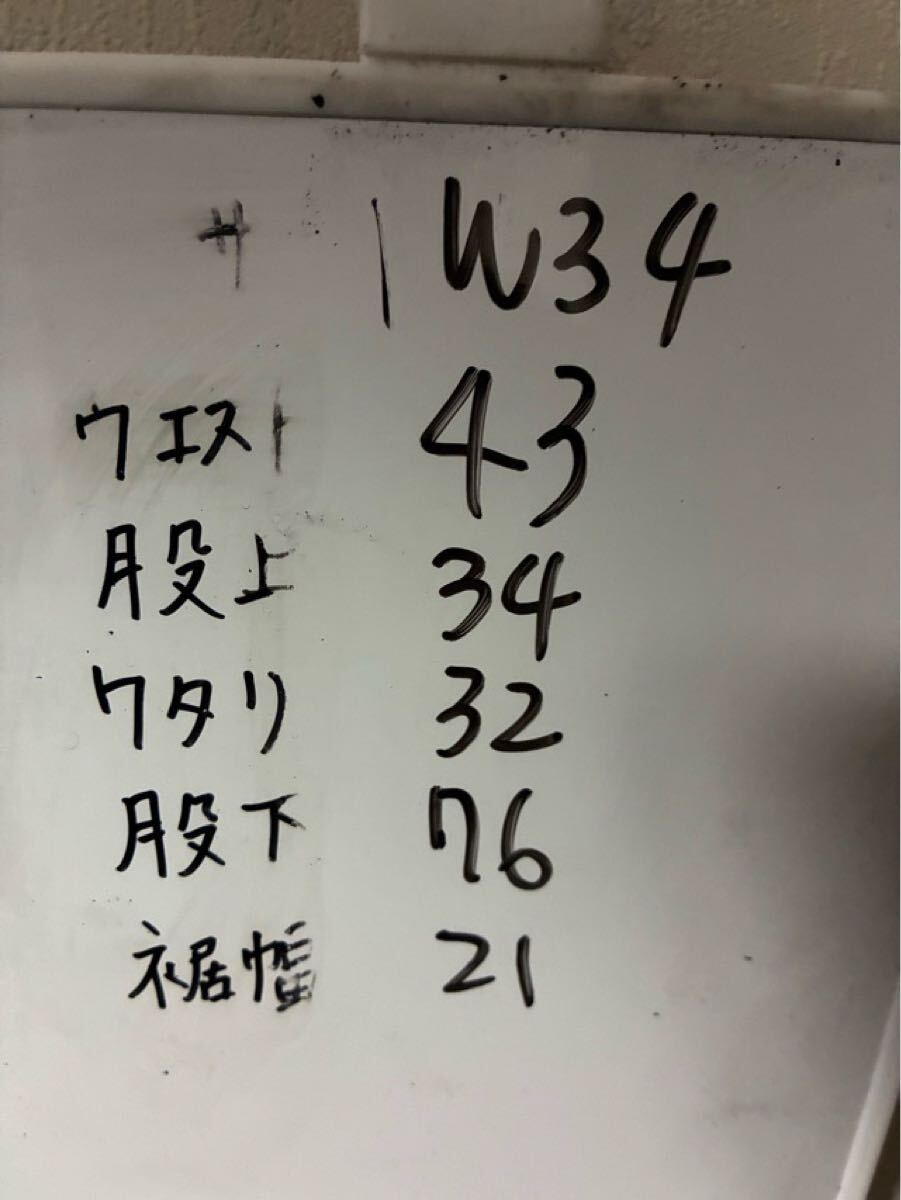 W34
ウエスト 43
股上 34
ワタリ 32
股下 76
裾幅 21